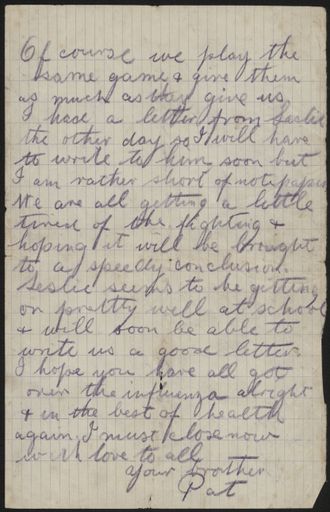 Of course we play the
same game & give them
as much as they give us
I had a letter from Leslie
the other day so I will have
to write to him soon but
I am rather short of notepaper
We are all getting a little
tired of the fighting &
hoping it will be brought
to a speedy conclusion.
Leslie seems to be getting
on pretty well at school
& will soon be able to
write us a good letter.
I hope you have all got
over the influenza alright
& in the best of health
again. I must close now
with love to all
Your brother
Pat